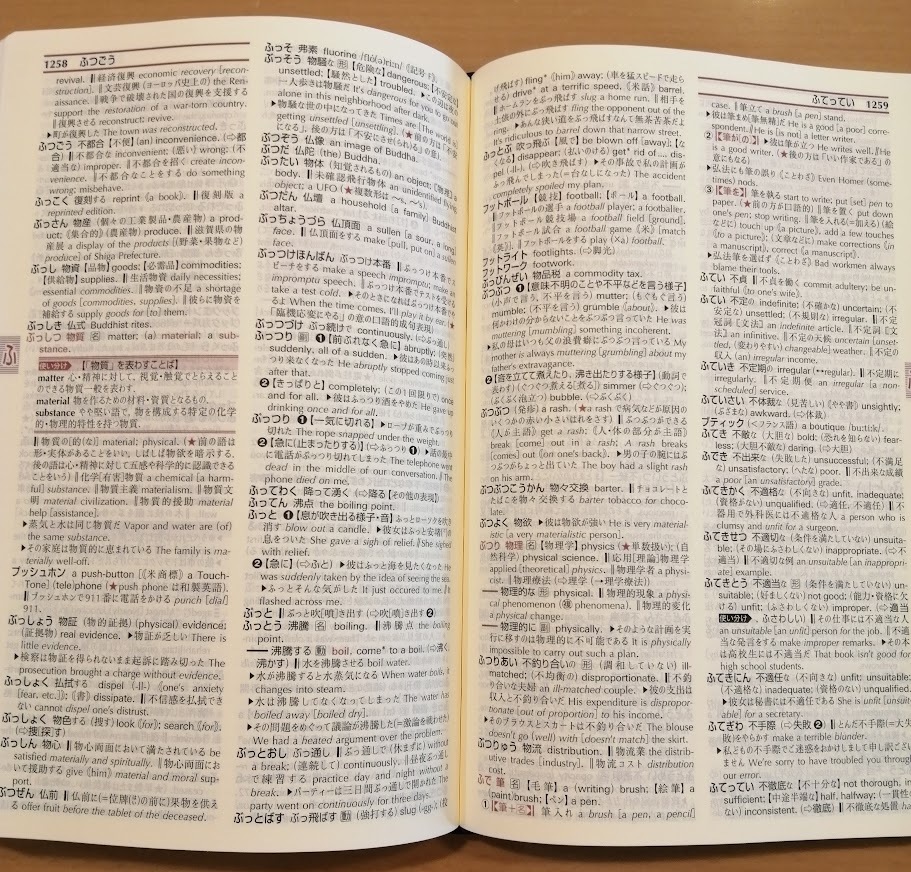 1258 ふつごう
revival. ‖経済復興 economic recovery [recon-
struction]. ‖文芸復興 (ヨーロッパ史上の) the Ren-
aissance. ‖戦争で破壊された国の復興を支援する
support the restoration of a war-torn country.
‖復興させる reconstruct; revive.
▶町が復興した The town was reconstructed.
ふつごう 不都合 【不便】 (an) inconvenience. (⇨都
合) ‖不都合な inconvenient; (悪い) wrong; (不
適当な) improper. ‖不都合を招く create incon-
venience. ‖不都合なことをする do something
wrong; misbehave.
ふっこく 復刻する reprint 《a book》. ‖復刻版 a
reprinted edition.
ぶっさん 物産 (個々の工業製品・農産物) a prod-
uct; 《集合的》 (農産物) produce. ‖滋賀県の物
産展 a display of the products [(野菜・果物など)
produce] of Shiga Prefecture.
ぶっし 物資 【品物】 goods; 【必需品】 commodities;
【供給物】 supplies. ‖生活物資 daily necessities;
essential commodities. ‖物資の不足 a shortage
of goods [commodities, supplies]. ‖彼らに物資
を補給する supply goods for [to] them.
ぶっしき 仏式 Buddhist rites.
ぶっしつ 物質 名 matter; (a) material; a sub-
stance.
使い分け 【「物質」を表わすことば】
matter 心・精神に対して, 視覚・触覚でとらえること
のできる物質一般を表わす.
material 物を作るための材料・資質となるもの.
substance やや堅い語で, 物を構成する特定の化学
的・物理的特性を持つ物質.
‖物質的(な) material; physical. (★前の語は
形・実体があることをいい, しばしば物欲を暗示する.
後の語は心・精神に対して五感や科学的に認識できる
ことをいう) ‖化学[有害]物質 a chemical [a harm-
ful] substance. ‖物質主義 materialism. ‖物質文
明 material civilization. ‖物質的援助 material
help [assistance].
▶蒸気と水は同じ物質だ Vapor and water are (of)
the same substance.
▶その家庭は物質的に恵まれている The family is ma-
terially well-off.
プッシュホン a push-button [《米商標》 a Touch-
Tone] (tele)phone (★push phone は和製英語).
‖プッシュホンで911番に電話をかける punch [dial]
911.
ぶっしょう 物証 (物的証拠) (physical) evidence;
(証拠物) real evidence. ▶物証が乏しい There is
little evidence.
▶検察は物証を得られないまま起訴に踏み切った The
prosecution brought a charge without evidence.
ふっしょく 払拭する dispel (-ll-) 《one's anxiety
[fear, etc.]》; 《書》 dissipate. ‖不信感を払拭でき
ない cannot dispel one's distrust.
ぶっしょく 物色する (捜す) look 《for》; search 《for》.
(⇨捜[探]す)
ぶっしん 物心 ‖物心両面において満たされている be
satisfied materially and spiritually. ‖物心両面にお
いて援助する give 《him》 material and moral sup-
port.
ぶつぜん 仏前 ‖仏前に(=位牌の前に)果物を供え
る offer fruit before the tablet of the deceased.
ふっそ 弗素 fluorine
ぶっそう 物騒な 形 【危険な】 dangerous;
unsettled; 【騒然とした】 troubled.
一人歩きは物騒だ It's dangerous for you to
alone in this neighborhood after dark.
▶物騒な世の中になってきた Times are [The world is]
getting unsettled [unsettling].
ぶつぞう 仏像 an image of Buddha.
ぶつだ 仏陀 (the) Buddha.
ぶったい 物体 (知覚されるもの) an object; 【物理】 a
body. ‖未確認飛行物体 an unidentified flying
object; a UFO (★複数形は ~s, ~'s).
ぶつだん 仏壇 a household [a family] Buddhist
altar.
ぶっちょうづら 仏頂面 a sullen [a sour, a long]
face. ‖仏頂面をする make [pull, put on] a sullen
face.
ぶっつけほんばん ぶっつけ本番 ‖ぶっつけ本番でス
ピーチをする make a speech impromptu; make an
impromptu speech. ‖ぶっつけ本番でテストを受ける
take a test cold.
るよ When the time comes, I'll play it by ear.
「臨機応変にやる」の意の口語的成句表現)
ぶっつづけ ぶっ続けで continuously. (⇨ぶっ通し)
ぷっつり 副 ❶【前ぶれなく急に】 abruptly; (突然)
suddenly, all of a sudden. ▶彼はあの時以来ぷっ
つり来なくなった He abruptly stopped coming just
after that.
❷【きっぱりと】 completely; (この1回限りで) once
and for all. ▶彼はぷっつり酒をやめた He gave up
drinking once and for all.
ぷっつり 副 ❶【一気に切れる】 ▶ロープが重みでぷっつり
切れた The rope snapped under the weight.
❷【急に(止まったりする)】 (⇨ぷっつり❶) ▶話の最中
に電話がぷっつり切れてしまった The telephone went
dead in the middle of our conversation. / The
phone died on me.
ふってわく 降って湧く (⇨降る【その他の表現】)
ふってん 沸点 the boiling point.
ふっと ❶【息が吹き出る様子・音】 ふっとローソクを吹き
消す blow out a candle. ▶彼女はふっと安堵の
息をついた She gave a sigh of relief. / She sighed
with relief.
❷【急に】 (⇨ふと) ▶彼はふっと海を見たくなった He
was suddenly taken by the idea of seeing the sea.
▶ふっとそんな気がした It just occurred to me. / It
flashed across me.
ぷっと ‖ぷっと吹[噴]き出す (⇨吹[噴]き出す❷)
ふっとう 沸騰 名 boiling. ‖沸騰点 the boiling
point.
── 沸騰する 動 boil, come* to a boil. (⇨沸く,
沸かす) ‖水を沸騰させる boil water.
▶水が沸騰すると水蒸気になる When water boils, it
changes into steam.
▶水は沸騰してなくなってしまった The water has
boiled away [boiled dry].
▶その問題をめぐって議論が沸騰した(=激論を戦わせた)
We had a heated argument over the problem.
ぶっとおし ぶっ通し ‖ぶっ通しで (休まずに) without
a break; (連続して) continuously. ‖昼夜ぶっ通し
で練習する practice day and night without a
break. ▶パーティーは三日間ぶっ通しで開かれた The
party went on continuously for three days.
ぶっとばす ぶっ飛ばす 動 (強打する) slug (-gg-);
ふてってい 1259
け飛ばす) fling* 《him》 away; (車を猛スピードで走ら
せる) drive* at a terrific speed, 《米話》 barrel.
‖ホームランをぶっ飛ばす slug a home run. ‖相手を
土俵の外にぶっ飛ばす fling the opponent out of the
ring. ▶あんな狭い道をぶっ飛ばすなんて無茶苦茶だよ
It's ridiculous to barrel down that narrow street.
ふっとぶ 吹っ飛ぶ 【風で】 be blown off [away]; 【な
くなる】 disappear; (払いのける) get* rid of ...., dis-
pel (-ll-). (⇨吹き飛ばす) ▶その事故で私の計画が
ふっ飛んでしまった(=台なしになった) The accident
completely spoiled my plan.
フットボール 【競技】 football; 【ボール】 a football.
‖フットボールの選手 a football player; a footballer.
‖フットボール競技場 a football field [ground].
‖フットボール試合 a football game 《米》 [match
《英》]. ‖フットボールをする play (×a) football.
フットライト footlights. (⇨脚光)
フットワーク footwork.
ぶっぴんぜい 物品税 a commodity tax.
ぶつぶつ ❶【意味不明のことや不平などを言う様子】
(小声で言う, 不平を言う) mutter; (もぐもぐ言う)
mumble; (不平を言う) grumble 《about》. ▶彼は
何かわけの分からないことをぶつぶつ言っていた He was
muttering [mumbling] something incoherent.
▶私の母はいつも父の浪費癖にぶつぶつ言っている My
mother is always muttering [grumbling] about my
father's extravagance.
❷【音を立てて煮えたり, 沸き出たりする様子】 (動詞で
表わす) (ぐつぐつ煮える[煮る]) simmer (⇨ぐつぐつ);
(ぶくぶく泡立つ) bubble. (⇨ぶくぶく)
ぶつぶつ 《発疹》 a rash. (★a rash で病気などが原因の
いくつかの赤い小さいはれをさす) ‖ぶつぶつができる
《人が主語》 get a rash; 《人・体の部分が主語》
break [come] out in a rash; A rash breaks
[comes] out 《on one's back》. ▶男の子の腕にはぶ
つぶつがちょっと出ていた The boy had a slight rash
on his arm.
ぶつぶつこうかん 物々交換 barter. ‖チョコレートと
たばこを物々交換する barter tobacco for choco-
late.
ぶつよく 物欲 ▶彼は物欲が強い He is very material-
istic [a very materialistic person].
ぶつり 物理 名 【物理学】 physics (★単数扱い); (自
然科学) physical science. ‖応用[理論]物理学
applied [theoretical] physics. ‖物理学者 a physi-
cist. ‖物理療法 (⇨理学(→理学療法))
── 物理的な 形 physical. ‖物理的現象 a physi-
cal phenomenon (複 phenomena). ‖物理的変化
a physical change.
── 物理的に 副 physically. ▶そのような計画を実
行に移すのは物理的に不可能である It is physically
impossible to carry out such a plan.
ふつりあい 不釣り合いの 形 (調和していない) ill-
matched; (不均衡の) disproportionate. ‖不釣
り合いな夫婦 an ill-matched couple. ▶彼の支出は
収入と不釣り合いだ His expenditure is dispropor-
tionate [out of proportion] to his income.
▶そのブラウスとスカートは不釣り合いだ The blouse
doesn't go (well) with [doesn't match] the skirt.
ぶつりゅう 物流 distribution. ‖物流業 the distrib-
utive trades [industry]. ‖物流コスト distribution
cost.
ふで 筆 名 【毛筆】 a (writing) brush; 【絵筆】 a
(paint)brush; 【ペン】 a pen.
①【筆+名】 筆入れ a brush [a pen, a pencil]
case. ‖筆立て a brush [a pen] stand.
▶彼は筆まめ(筆無精)だ He is a good [a poor] corre-
spondent. / He is [is not] a letter writer.
②【筆が(の)】 ▶彼は筆が立つ He writes well. / He
is a good writer. (★後の方は「いい作家である」の
意にもなる)
▶弘法にも筆の誤り 《ことわざ》 Even Homer (some-
times) nods.
③【筆を】 筆を執る start to write; put [set] pen to
paper. (★前の方が口語的) ‖筆を置く put down
one's pen; stop writing. ‖筆を入れる(=加える) (絵
などに) touch up 《a picture》, add a few touches
《to a picture》; (文章などに) make corrections 《in
a manuscript》, correct 《a manuscript》.
▶弘法筆を選ばず 《ことわざ》 Bad workmen always
blame their tools.
ふてい 不貞 ‖不貞を働く commit adultery; be un-
faithful 《to one's wife》.
ふてい 不定の indefinite; (不確かな) uncertain; (不
安定な) unsettled; (不規則な) irregular. ‖不定
冠詞 〔文法〕 an indefinite article. ‖不定詞 〔文
法〕 an infinitive. ‖不定の天候 uncertain [unset-
tled, (変わりやすい) changeable] weather. ‖不定の
収入 (an) irregular income.
ふていき 不定期の irregular (↔regular). ‖不定期に
irregularly. ‖不定期便 an irregular [a non-
scheduled] service.
ふていさい 不体裁な (見苦しい) 《やや書》 unsightly;
(ぶざまな) awkward. (⇨体裁)
ブティック 《<フランス語》 a boutique
ふてき 不敵な (大胆な) bold; (恐れを知らない) fear-
less; (大胆不敵な) daring. (⇨大胆)
ふでき 不出来な (失敗した) unsuccessful; (不満足
な) unsatisfactory; (へたな) poor. ‖不出来な成績
a poor [an unsatisfactory] grade.
ふてきかく 不適格な (不向きな) unfit, inadequate;
(資格がない) unqualified. (⇨適任, 不適任) ‖不
器用で外科医には不適格な人 a person who is
clumsy and unfit for a surgeon.
ふてきせつ 不適切な (条件を満たしていない) unsuita-
ble; (その場にふさわしくない) inappropriate. (⇨不適
当) ‖不適切な例 an unsuitable [an inappropri-
ate] example.
ふてきとう 不適当な 形 (条件を満たしていない) un-
suitable; (好ましくない) not good; (能力・資格に欠
ける) unfit; (ふさわしくない) improper. (⇨適当
使い分け, ふさわしい) ‖その仕事には不適当な人
an unsuitable [an unfit] person for the job. ‖不適
当な発言をする make improper remarks. ▶その本
は高校生には不適当だ That book isn't good for
high school students.
ふてきにん 不適任な (不向きな) unfit; unsuitable;
(不適格な) inadequate; (資格のない) unqualified.
▶彼女は秘書には不適任である She is unfit [unsuit-
able] for a secretary.
ふてぎわ 不手際 (⇨失敗❷) ‖とんだ不手際(=大失
敗)をやらかす make a terrible blunder.
▶私どもの不手際でご迷惑をおかけしまして申し訳ござい
ません We're sorry to have troubled you through
our error.
ふてってい 不徹底な (不十分な) not thorough, in-
sufficient; 【中途半端な】 half, halfway; (一貫性の
ない) inconsistent. (⇨徹底) ‖不徹底な処置
ふ